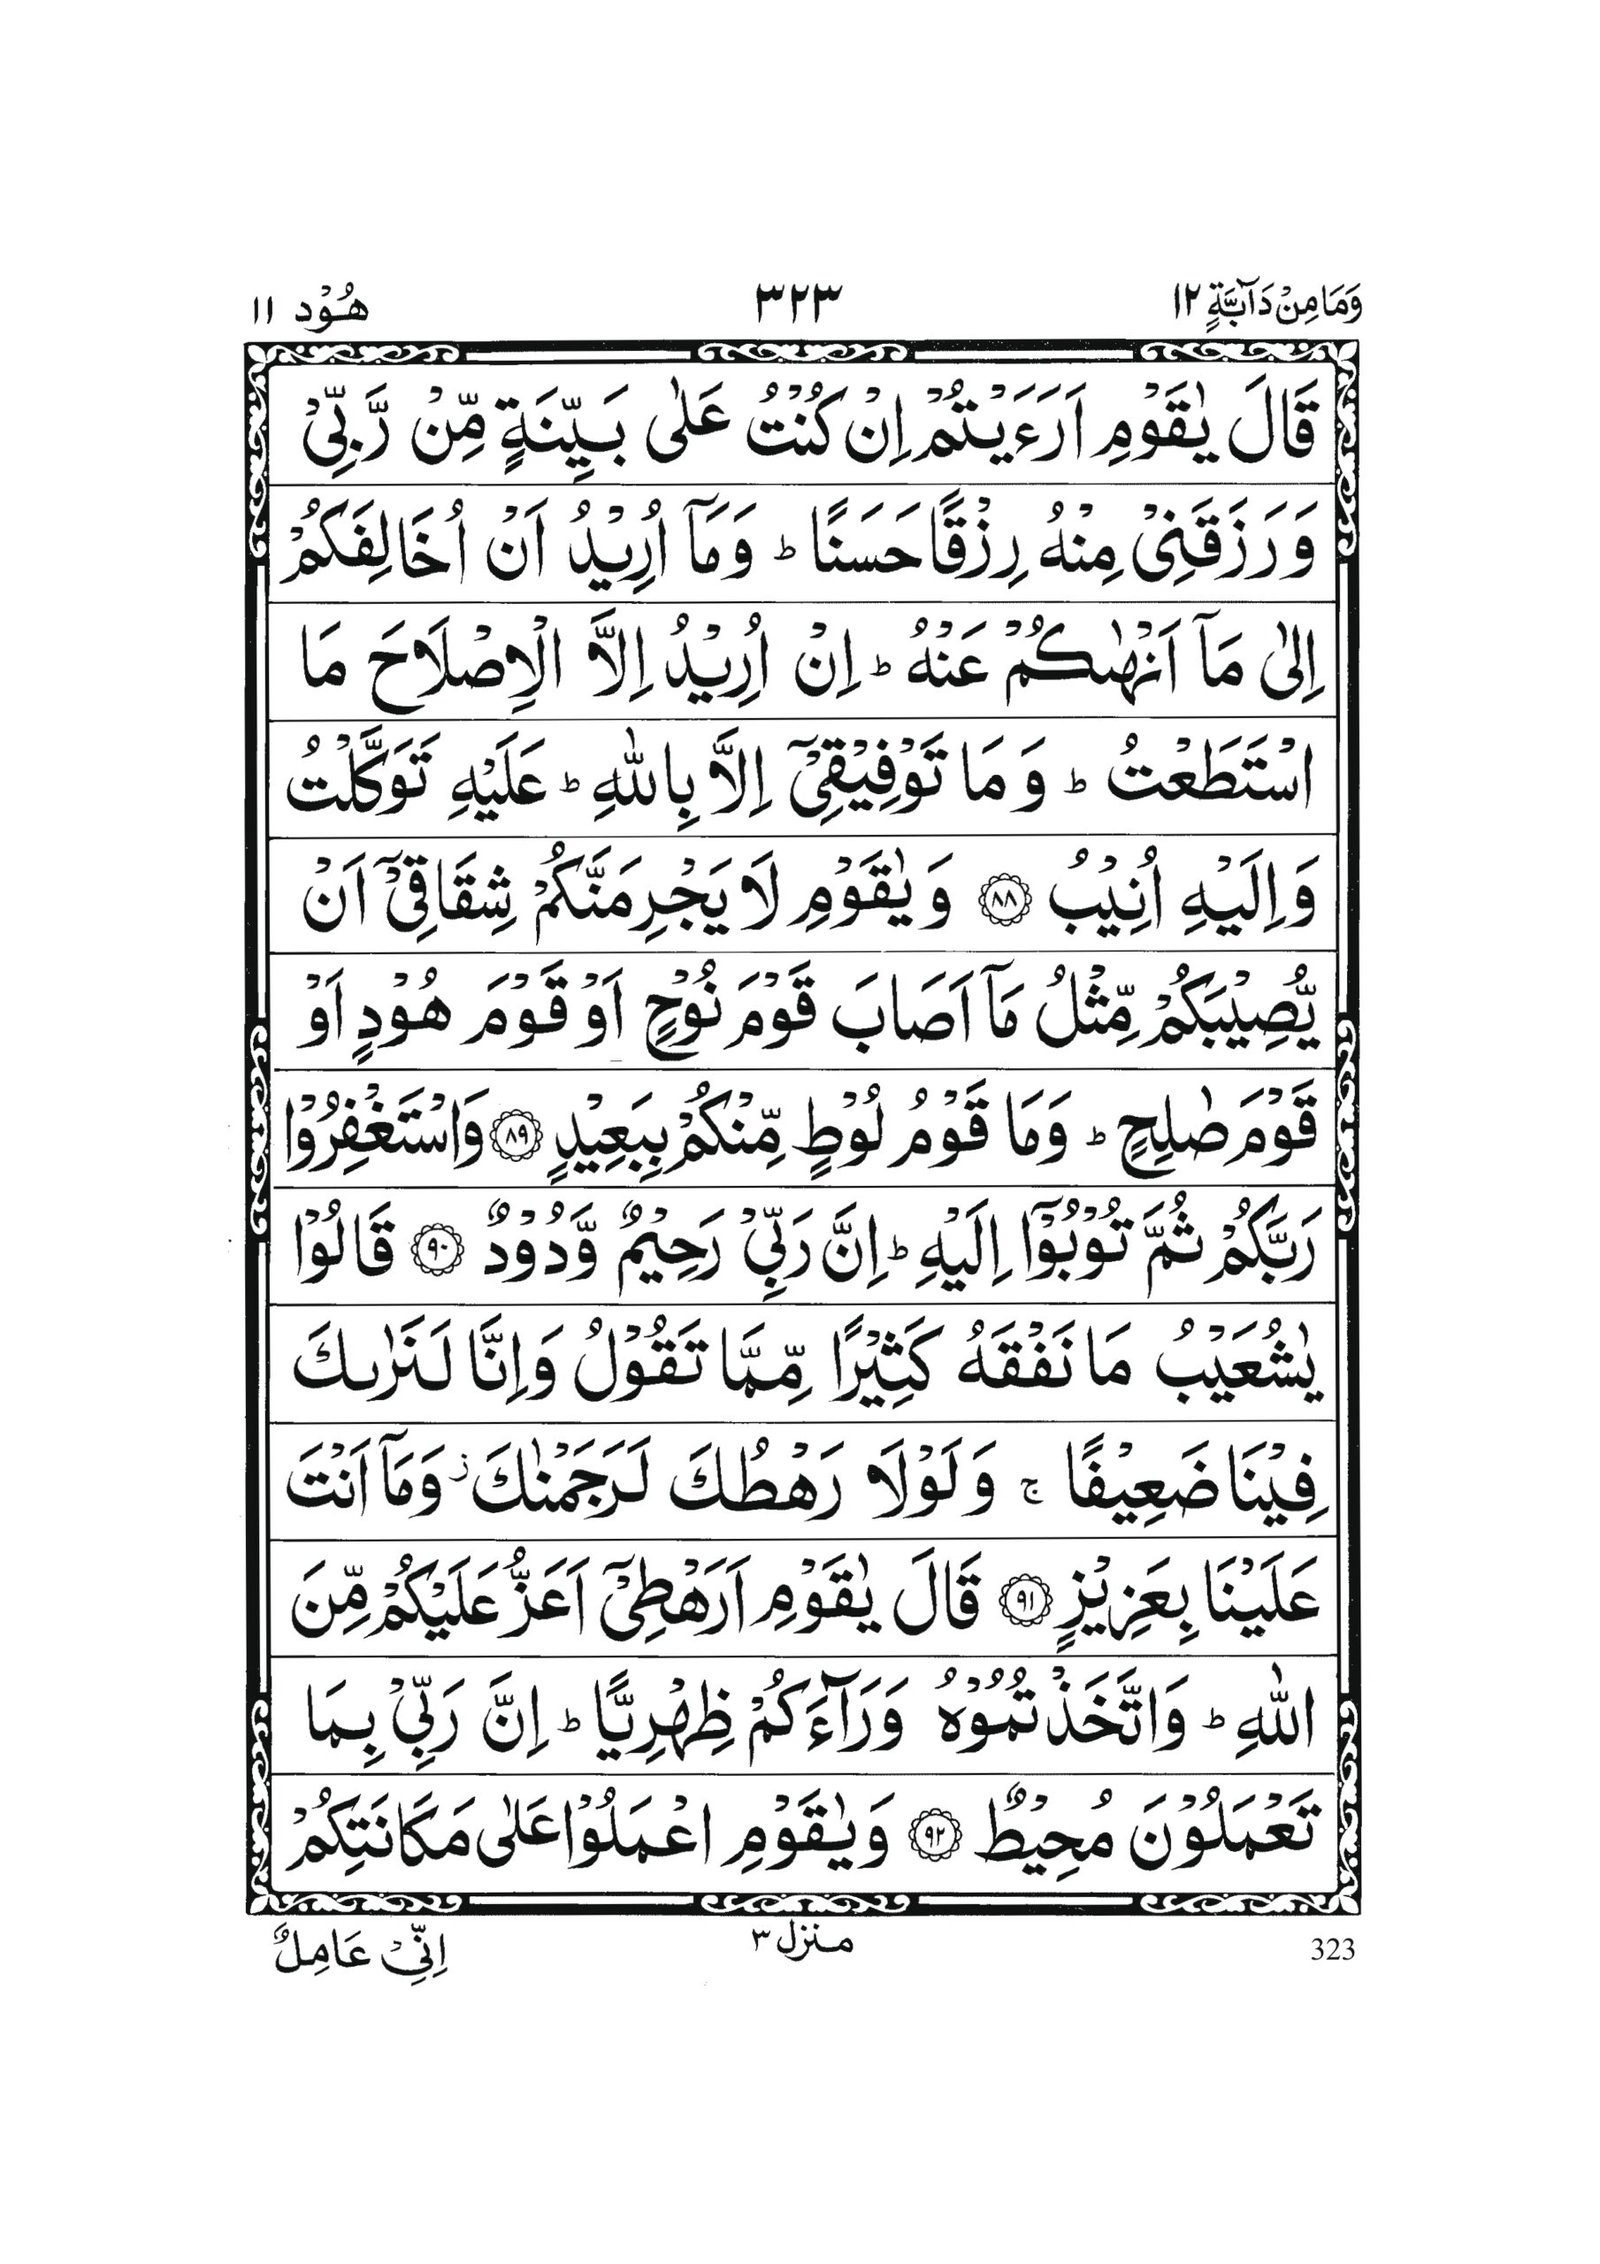 وَمَا مِنْ دَآبَّةٍ ١٢ ٣٢٣ هُوْد ١١
قَالَ يٰقَوْمِ اَرَءَيْتُمْ اِنْ كُنْتُ عَلٰى بَيِّنَةٍ مِّنْ رَّبِّيْ
وَرَزَقَنِيْ مِنْهُ رِزْقًا حَسَنًا ؕ وَمَآ اُرِيْدُ اَنْ اُخَالِفَكُمْ
اِلٰى مَآ اَنْهٰىكُمْ عَنْهُ ؕ اِنْ اُرِيْدُ اِلَّا الْاِصْلَاحَ مَا
اسْتَطَعْتُ ؕ وَمَا تَوْفِيْقِيْٓ اِلَّا بِاللّٰهِ ؕ عَلَيْهِ تَوَكَّلْتُ
وَاِلَيْهِ اُنِيْبُ ﴿٨٨﴾ وَيٰقَوْمِ لَا يَجْرِمَنَّكُمْ شِقَاقِيْٓ اَنْ
يُّصِيْبَكُمْ مِّثْلُ مَآ اَصَابَ قَوْمَ نُوْحٍ اَوْ قَوْمَ هُوْدٍ اَوْ
قَوْمَ صٰلِحٍ ؕ وَمَا قَوْمُ لُوْطٍ مِّنْكُمْ بِبَعِيْدٍ ﴿٨٩﴾ وَاسْتَغْفِرُوْا
رَبَّكُمْ ثُمَّ تُوْبُوْٓا اِلَيْهِ ؕ اِنَّ رَبِّيْ رَحِيْمٌ وَّدُوْدٌ ﴿٩٠﴾ قَالُوْا
يٰشُعَيْبُ مَا نَفْقَهُ كَثِيْرًا مِّمَّا تَقُوْلُ وَاِنَّا لَنَرٰىكَ
فِيْنَا ضَعِيْفًا ۚ وَلَوْلَا رَهْطُكَ لَرَجَمْنٰكَ ز وَمَآ اَنْتَ
عَلَيْنَا بِعَزِيْزٍ ﴿٩١﴾ قَالَ يٰقَوْمِ اَرَهْطِيْٓ اَعَزُّ عَلَيْكُمْ مِّنَ
اللّٰهِ ؕ وَاتَّخَذْتُمُوْهُ وَرَآءَكُمْ ظِهْرِيًّا ؕ اِنَّ رَبِّيْ بِمَا
تَعْمَلُوْنَ مُحِيْطٌ ﴿٩٢﴾ وَيٰقَوْمِ اعْمَلُوْا عَلٰى مَكَانَتِكُمْ
323 منزل ٣ اِنِّيْ عَامِلٌ